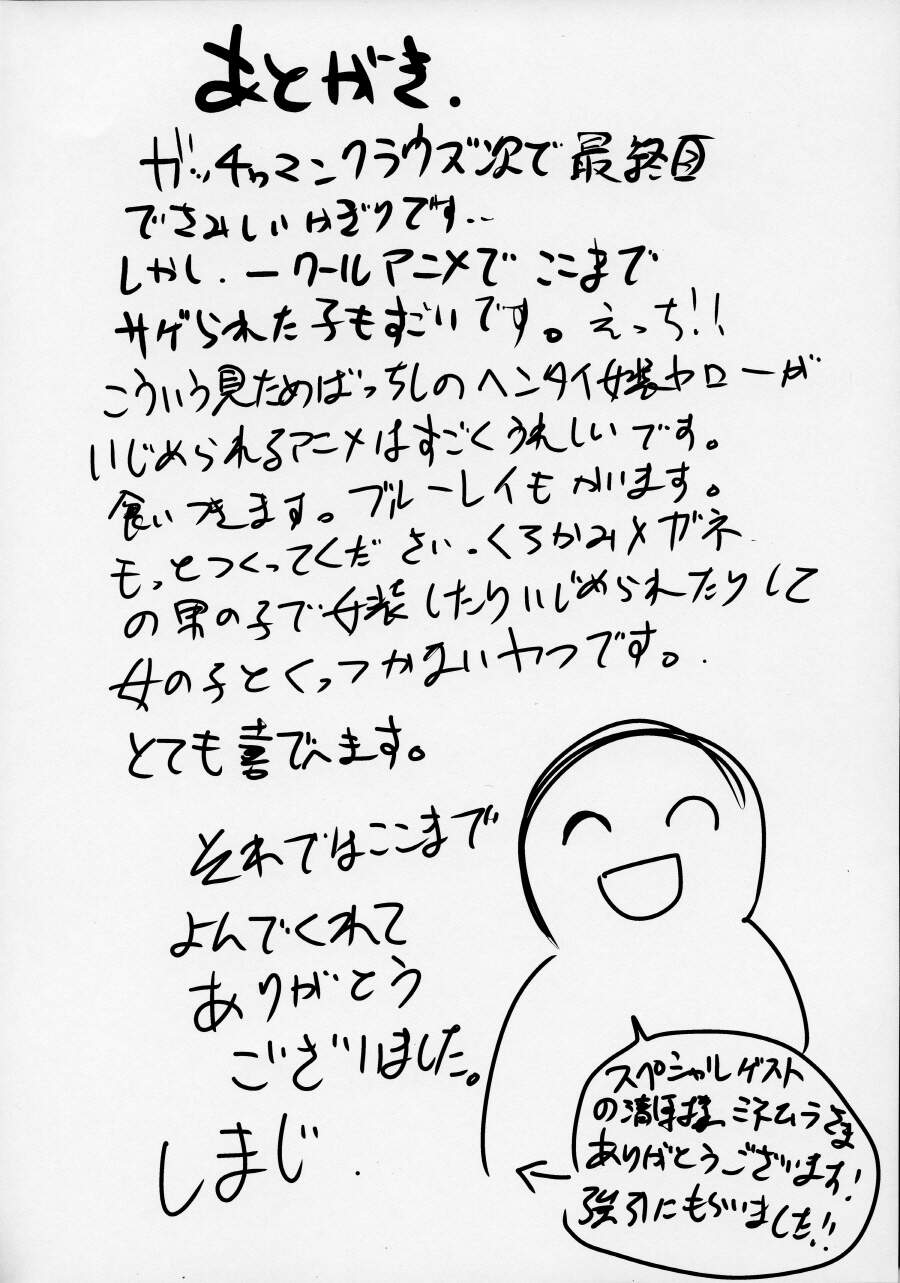 あとがき.
ガッチャマンクラウズ次で最終回
でさみしいかぎりです..
しかし.一クールアニメでここまで
サゲられた子もすごいです。えっち!!
こういう見ためばっちしのヘンタイ女装ヤローが
いじめられるアニメはすごくうれしいです。
食いつきます。ブルーレイもかいます。
もっとつくってください.くろかみメガネ
の男の子で女装したりいじめられたりして
女の子とくっつかないヤつです。.
とても喜びます。
それではここまで
よんでくれて
ありがとう
ございました。
しまじ.
スペシャルゲスト
の清ほ様 ミネムラさま
ありがとうございます!
強引にもらいました!!